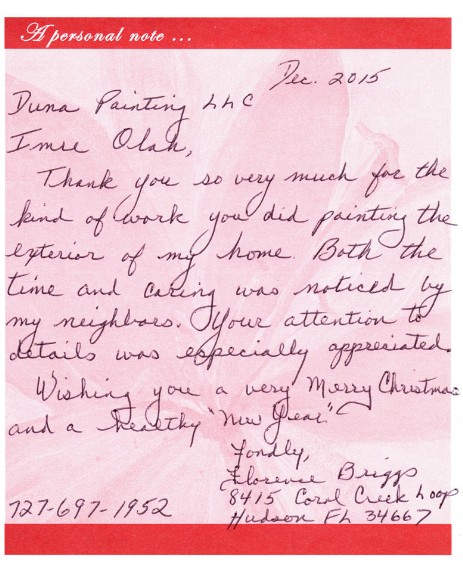 A personal note ...
Dec. 2015
Duna Painting LLC
Imre Olah,
Thank you so very much for the
kind of work you did painting the
exterior of my home. Both the
time and caring was noticed by
my neighbors. Your attention to
details was especially appreciated.
Wishing you a very Merry Christmas
and a healthy "New Year."
Fondly,
Florence Briggs
8415 Coral Creek Loop
727-697-1952 Hudson FL 34667